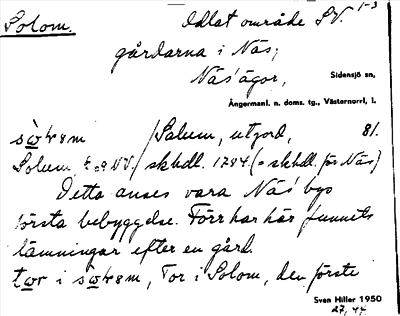 Solom.
Odlat område S.V. 1-3
gårdarna i Näs,
Näs' ägor,
Sidensjö sn,
Ångermanl. n. doms. tg., Västernorrl. l.
/Solum, utjord, 81.
Solum / skhdl. 1784 (= skhdl. för Näs)
Detta anses vara Näs' bys
första bebyggelse. Förr har här funnits
lämningar efter en gård.
i Tor i Solom, den förste
Sven Hiller 1950
27, 44